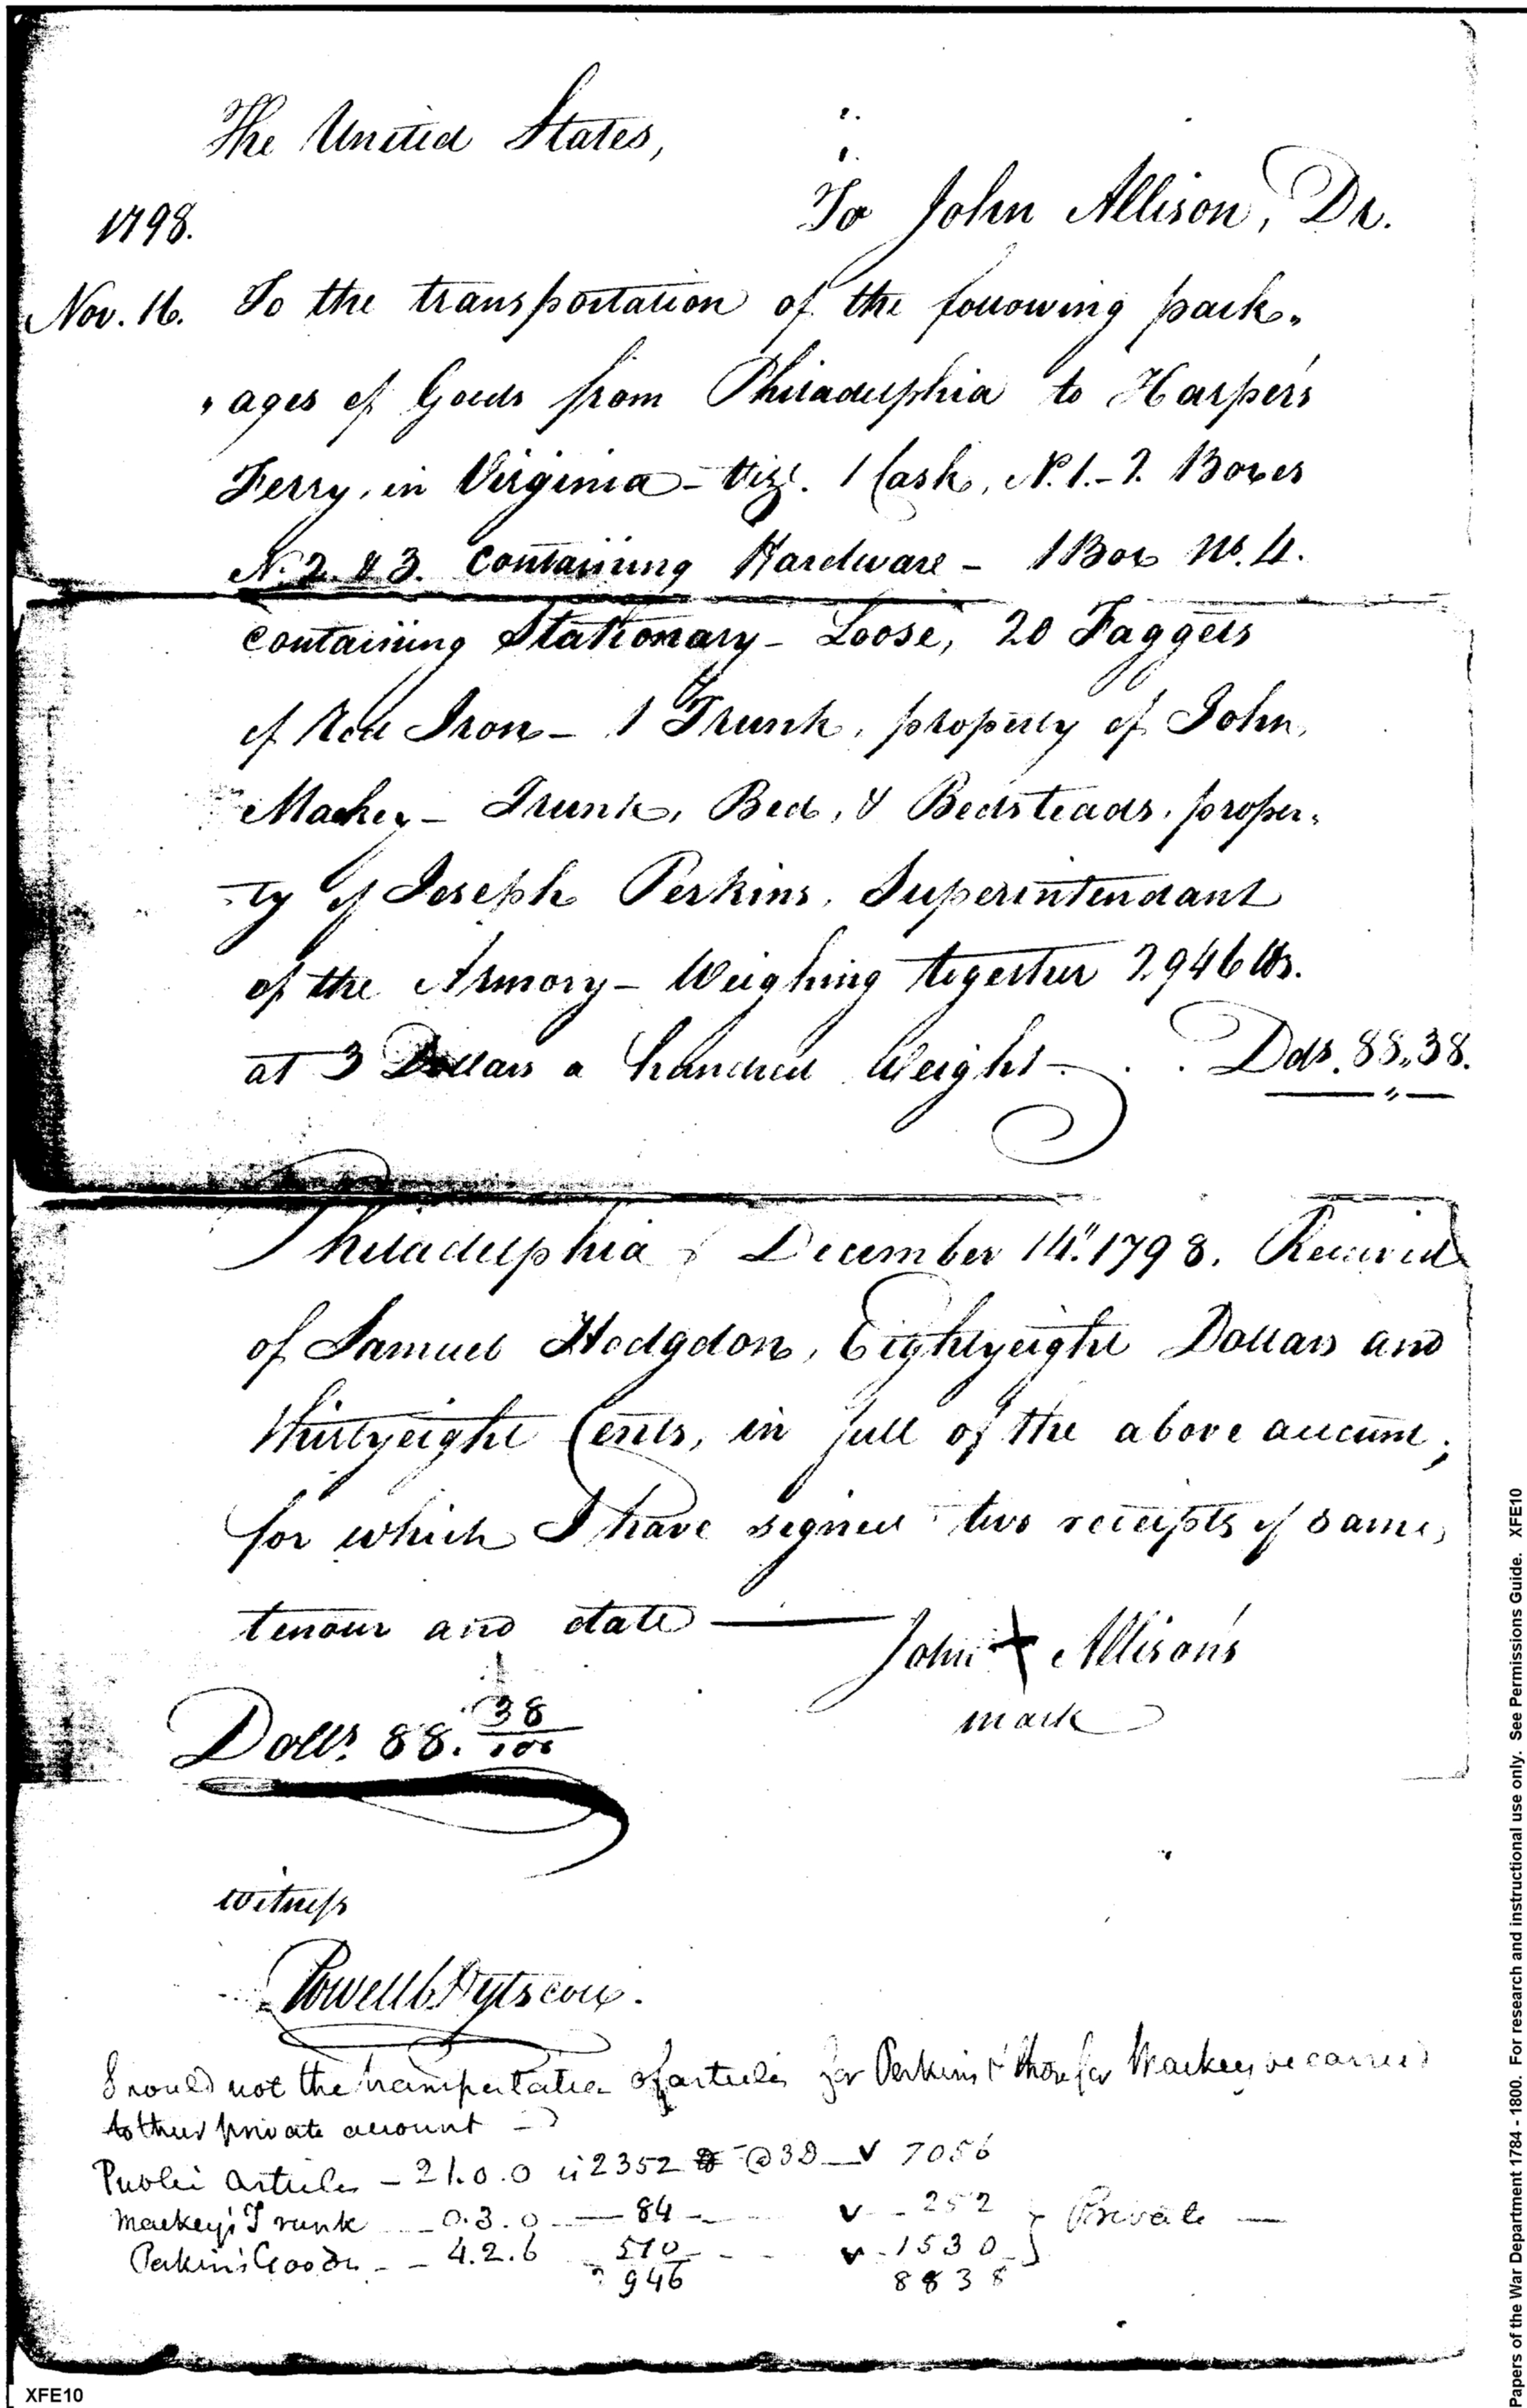 The United States,
To John Allison, Dr.
1798.
Nov. 16. To the transportation of the following pack=
"ages of Goods from Philadelphia to Harper's
Ferry, in Virginia - Viz. 1 Cask, No. 1. - 2. Boxes
No. 2. & 3. containing Hardware - 1 Box No. 4.
containing Stationary - Loose, 20 Faggots
of Rod Iron - 1 Trunk, property of John
Mackey - Trunk, Bed, & Bedsteads, proper=
=ty of Joseph Perkins, Superintendant
of the Armory - Weighing together 2,946 lbs.
at 3 Dollars a hundred Weight - . . Dols. 88,,38.
Philadelphia, December 14th. 1798. Received
of Samuel Hodgdon, Eightyeight Dollars and
thirtyeight Cents, in full of the above account;
for which I have signed two receipts of same
tenour and date — John + Allison's
mark
Dolls. 88. 38/100
witness
Should not the transportation of articles for Perkins & those for Mackey be carried
to their private account -
Public Articles - 21.0.0 is 2352 lb @ 3D 7056
Mackey's Trunk - 0.3.0 - 84 - 252 } Private -
Perkins Goods - 4.2.6 510 - 1530 }
2946 8838
XFE10
Papers of the War Department 1784 - 1800. For research and instructional use only. See Permissions Guide. XFE10